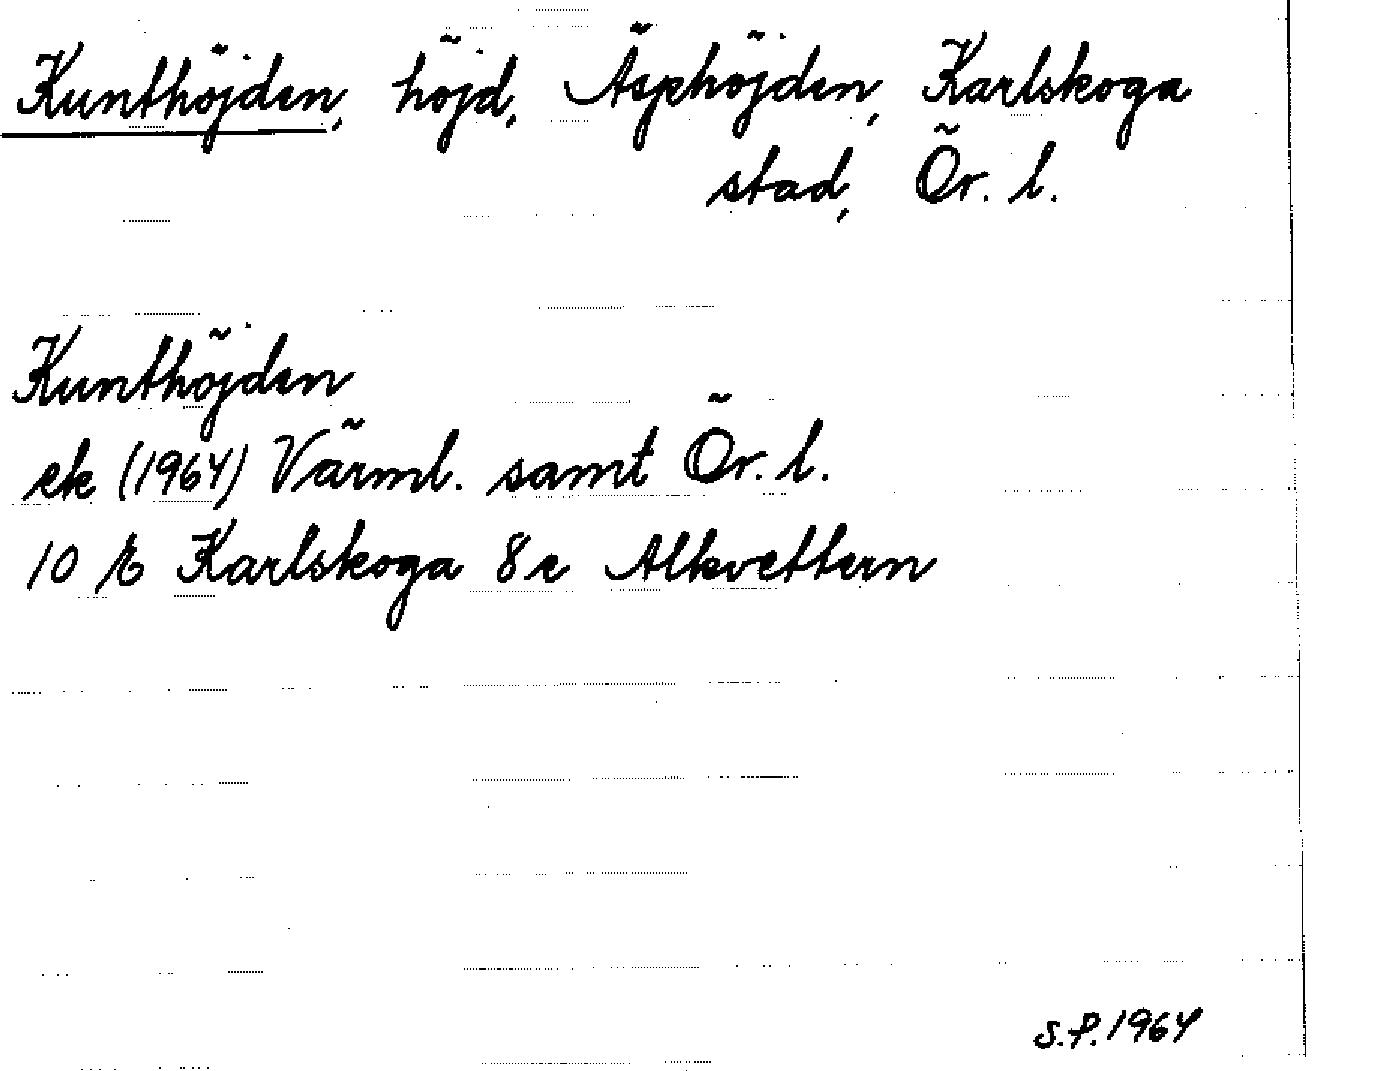 Kunthöjden, höjd, Äsphöjden, Karlskoga
stad, Ör. l.
Kunthöjden
ek (1964) Värml. samt Ör. l.
10 E Karlskoga 8e Alkvettern
S.P. 1964